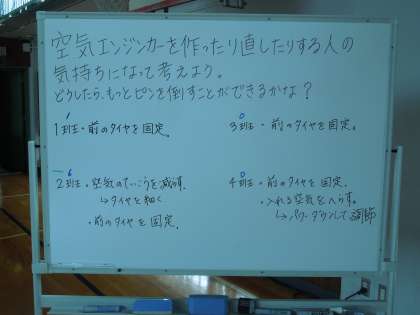 空気エンジンカーを作ったり直したりする人の
気持ちになって考えよう。
どうしたら、もっとピンを倒すことができるかな？
1
1班・前のタイヤを固定。
0
3班・前のタイヤを固定。
6
2班・空気のていこうを減らす。
↳タイヤを細く
・前のタイヤを固定。
0
4班・前のタイヤを固定。
・入れる空気をへらす。
↳パワーダウンして調節